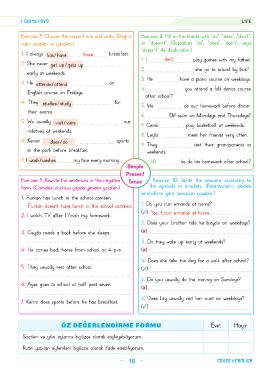 LIFE
Exercise 7: Choose the correct one and write. (Doğru
olanı seçelim ve yazalım.)
1. I always has / have have breakfast.
2. She never get up / gets up
early at weekends.
3. He attends / attend an
English course on Fridays.
4. They studies / study for
their exams.
5. We usually visit / visits our
relatives at weekends.
6. Kerem does / do sports
in the park before breakfast.
7. I wash / washes my face every morning.
Exercise 8: Fill in the blanks with "do", "does", "don't",
or "doesn't". (Boşlukları "do", "does", "don't", veya
"doesn't" ile dolduralım.)
1. I don't play games with my father.
2. she go to school by bus?
3. He have a piano course on weekdays.
4. you attend a folk dance course
after school?
5. We do our homework before dinner.
6. Elif swim on Mondays and Thursdays?
7. Cemil play basketball at weekends.
8. Leyla meet her friends very often.
9. They visit their grandparents at
weekends.
10. he do his homework after school?
Simple
Present
Tense
Exercise 9: Rewrite the sentences in the negative
form. (Cümleleri olumsuz yapıda yeniden yazalım.)
1. Furkan has lunch in the school canteen.
Furkan doesn't have lunch in the school canteen.
2. I watch TV after I finish my homework.
3. Ceyda reads a book before she sleeps.
4. He comes back home from school at 4 p.m.
5. They usually rest after school.
6. Ayşe goes to school at half past seven.
7. Kerim does sports before he has breakfast.
Exercise 10: Write the answers according to
the symbols in brackets. (Parantezlerin içindeki
sembollere göre cevapları yazalım.)
1. Do you run errands at home?
(✓) Yes, I run errands at home.
2. Does your brother ride his bicycle on weekdays?
(x)
3. Do they wake up early at weekends?
(x)
4. Does she take the dog for a walk after school?
(✓)
5. Do you usually do the ironing on Sundays?
(x)
6. Does Lily usually visit her aunt on weekdays?
(✓)
ÖZ DEĞERLENDİRME FORMU Evet Hayır
Saatleri ve yılın aylarını İngilizce olarak söyleyebiliyorum.
Rutin yapılan eylemleri İngilizce olarak ifade edebiliyorum.
10